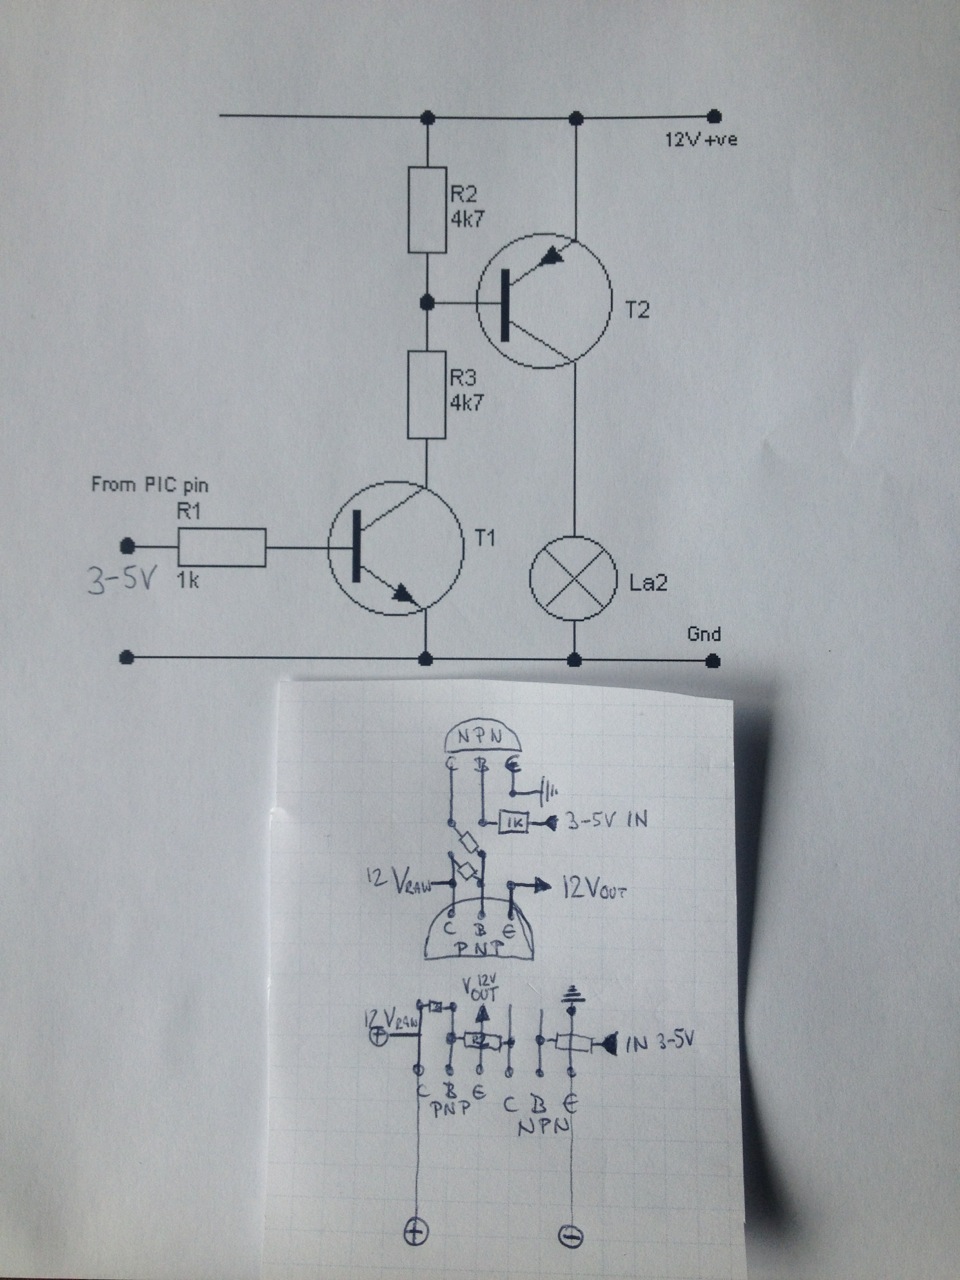 12V +ve
R2
4k7
T2
R3
4k7
From PIC pin
R1
T1
3-5V 1k
La2
Gnd
NPN
C B E
1K 3-5V IN
12 VRAW 12VOUT
C B E
PNP
12V
VOUT
12 VRAW
+ IN 3-5V
C B E C B E
PNP NPN
+ -